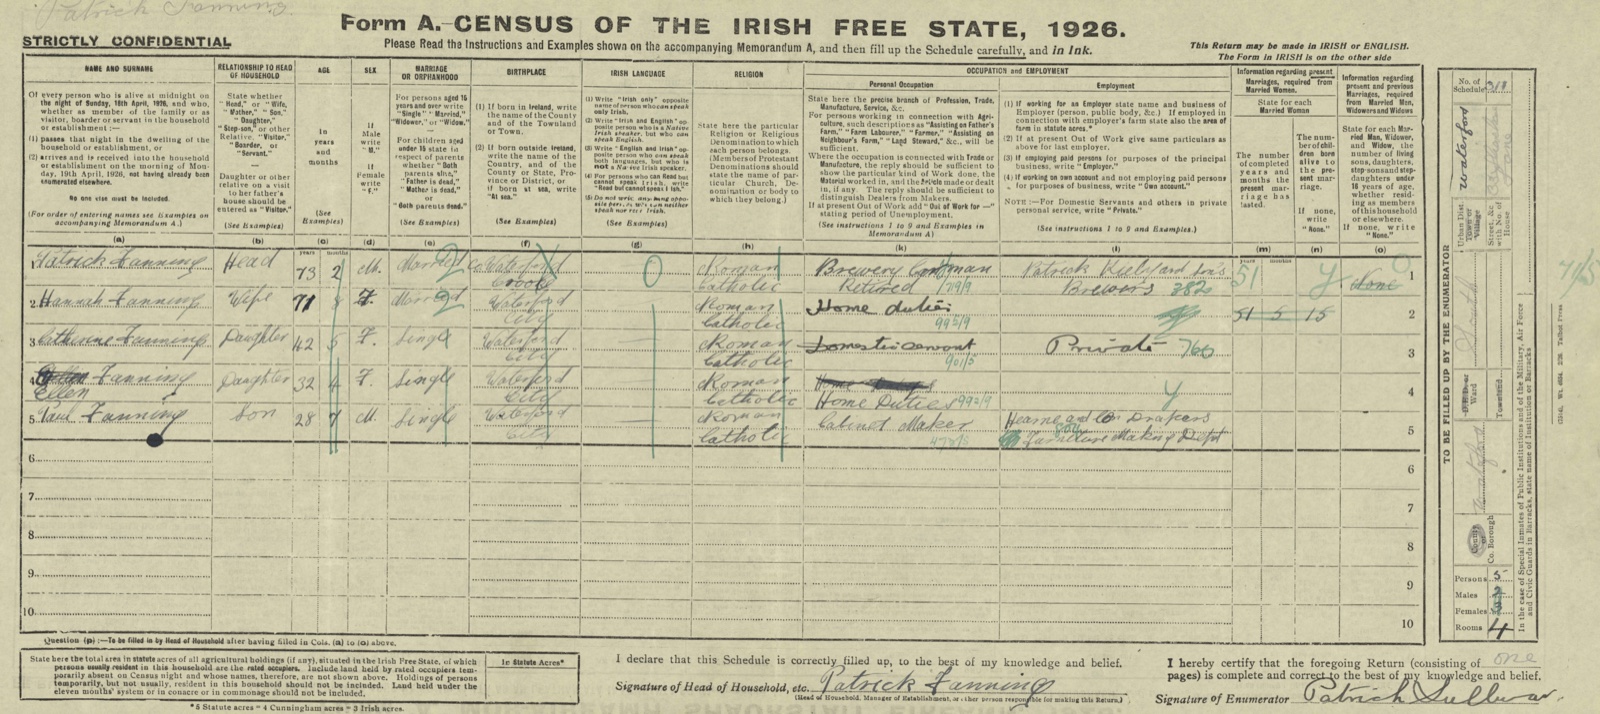 Patrick Fanning
Form A.—CENSUS OF THE IRISH FREE STATE, 1926.
STRICTLY CONFIDENTIAL
Please Read the Instructions and Examples shown on the accompanying Memorandum A, and then fill up the Schedule carefully, and in Ink.
This Return may be made in IRISH or ENGLISH.
The Form in IRISH is on the other side
NAME AND SURNAME
Of every person who is alive at midnight on
the night of Sunday, 18th April, 1926, and who,
whether as member of the family or as
visitor, boarder or servant in the household
or establishment:—
(1) passes that night in the dwelling of the
household or establishment, or
(2) arrives and is received into the household
or establishment on the morning of Mon-
day, 19th April, 1926, not having already been
enumerated elsewhere.
No one else must be included.
(For order of entering names see Examples on
accompanying Memorandum A.)
(a)
RELATIONSHIP TO HEAD
OF HOUSEHOLD
State whether
"Head," or "Wife,
"Mother," "Son,"
"Daughter,"
"Step-son," or other
Relative, "Visitor,"
"Boarder, or
"Servant."
Daughter or other
relative on a visit
to her father's
house should be
entered as "Visitor."
(See Examples)
(b)
AGE
In
years
and
months
(See
Examples)
(c)
SEX
If
Male
write
"M."
If
Female
write
"F."
(d)
MARRIAGE
OR ORPHANHOOD
For persons aged 15
years and over write
"Single" "Married,"
"Widower," or "Widow."
For children aged
under 15 state in
respect of parents
whether "Both
parents alive,"
"Father is dead,"
"Mother is dead,"
or
"Both parents dead."
(See Examples)
(e)
BIRTHPLACE
(1) If born in Ireland, write
the name of the County
and of the Townland
or Town.
(2) If born outside Ireland,
write the name of the
Country, and of the
County or State, Pro-
vince or District, or
if born at sea, write
"At sea."
(See Examples)
(f)
IRISH LANGUAGE
(1) Write "Irish only" opposite
name of person who can speak
only Irish.
(2) Write "Irish and English" op-
posite person who is a Native
Irish speaker, but who can
speak English.
(3) Write "English and Irish" op-
posite persons who can speak
both languages, but who is
not a Native Irish speaker.
(4) For persons who can Read but
cannot speak Irish, write
"Read but cannot speak Irish."
(5) Do not write anything oppo-
site person who can neither
speak nor read Irish.
(g)
RELIGION
State here the particular
Religion or Religious
Denomination to which
each person belongs.
(Members of Protestant
Denominations should
state the name of the
particular Church, De-
nomination or body to
which they belong.)
(h)
OCCUPATION AND EMPLOYMENT
Personal Occupation
State here the precise branch of Profession, Trade,
Manufacture, Service, &c.
For persons working in connection with Agri-
culture, such descriptions as "Assisting on Father's
Farm," "Farm Labourer," "Farmer," "Assisting on
Neighbour's Farm," "Land Steward," &c., will be
sufficient.
Where the occupation is connected with Trade or
Manufacture, the reply should be sufficient to
show the particular kind of Work done, the
Material worked in, and the Article made or dealt
in, if any. The reply should be sufficient to
distinguish Dealers from Makers.
If at present Out of Work add "Out of Work for —"
stating period of Unemployment.
(See instructions 1 to 9 and Examples in
Memorandum A)
(k)
Employment
(1) If working for an Employer state name and business of
Employer (person, public body, &c.) If employed in
connection with employer's farm state also the area of
farm in statute acres.
(2) If at present Out of Work give same particulars as
above for last employer.
(3) If employing paid persons for purposes of the principal
business, write "Employer."
(4) If working on own account and not employing paid persons
for purposes of business, write "Own account."
NOTE:—For Domestic Servants and others in private
personal service, write "Private."
(See instructions 1 to 9 and Examples)
(l)
Information regarding present
Marriages, required from
Married Women.
State for each
Married Woman
The number of
completed
years and
months the
present mar-
riage has
lasted.
(m)
The num-
ber of child-
ren born
alive to
the pre-
sent mar-
riage.
If none,
write
"None."
(n)
Information regarding
present and previous
Marriages, required
from Married Men,
Widowers and Widows
State for each Mar-
ried Man, Widower,
and Widow, the num-
ber of living sons,
daughters, step-sons
and step-daughters under
16 years of age,
whether resid-
ing as members
of this household
or elsewhere.
If none, write
"None."
(o)
years months
years months
1 Patrick Fanning Head 73 2 M. Married Co Waterford Roman Catholic Brewery Retired 79/9 Patrick Kiely and Son's Brewers 382 51 None 1
2 Hannah Fanning Wife 71 F. Married Waterford City Roman Catholic Home duties 995/9 51 5 15 2
3 Catherine Fanning Daughter 42 5 F. Single Waterford City Roman Catholic Domestic Servant 901/5 Private 760 3
4 Fanning Ellen Daughter 32 4 F. Single Waterford City Roman Catholic Home Duties 995/9 4
5 Paul Fanning Son 28 7 M. Single Waterford City Roman Catholic Cabinet Maker Hearne and Co Drapers Furniture Making Dept 5
6 6
7 7
8 8
9 9
10 10
Question (p):—To be filled in by Head of Household after having filled in Cols. (a) to (o) above.
State here the total area in statute acres of all agricultural holdings (if any), situated in the Irish Free State, of which
persons usually resident in this household are the rated occupiers. Include land held by rated occupiers tem-
porarily absent on Census night and whose names, therefore, are not shown above. Holdings of persons
temporarily, but not usually, resident in this household should not be included. Land held under the
eleven months' system or in conacre or in commonage should not be included.
In Statute Acres*
*5 Statute acres = 4 Cunningham acres = 3 Irish acres.
I declare that this Schedule is correctly filled up, to the best of my knowledge and belief.
Signature of Head of Household, etc. Patrick Fanning
(Head of Household, Manager of Establishment, or other person responsible for making this Return.)
I hereby certify that the foregoing Return (consisting of one
pages) is complete and correct to the best of my knowledge and belief.
Signature of Enumerator Patrick Sullivan
TO BE FILLED UP BY THE ENUMERATOR
No. of
Schedule
Urban Dist.
Town or
Village
Waterford
Street, &c.
with No. of
House
Ward
South
Townland
County
or
Co. Borough
Waterford
Persons 5
Males
Females
Rooms 4
In the case of Special Inmates of Public Institutions and of the Military, Air Force
and Civic Guards in Barracks, state name of Institution or Barracks